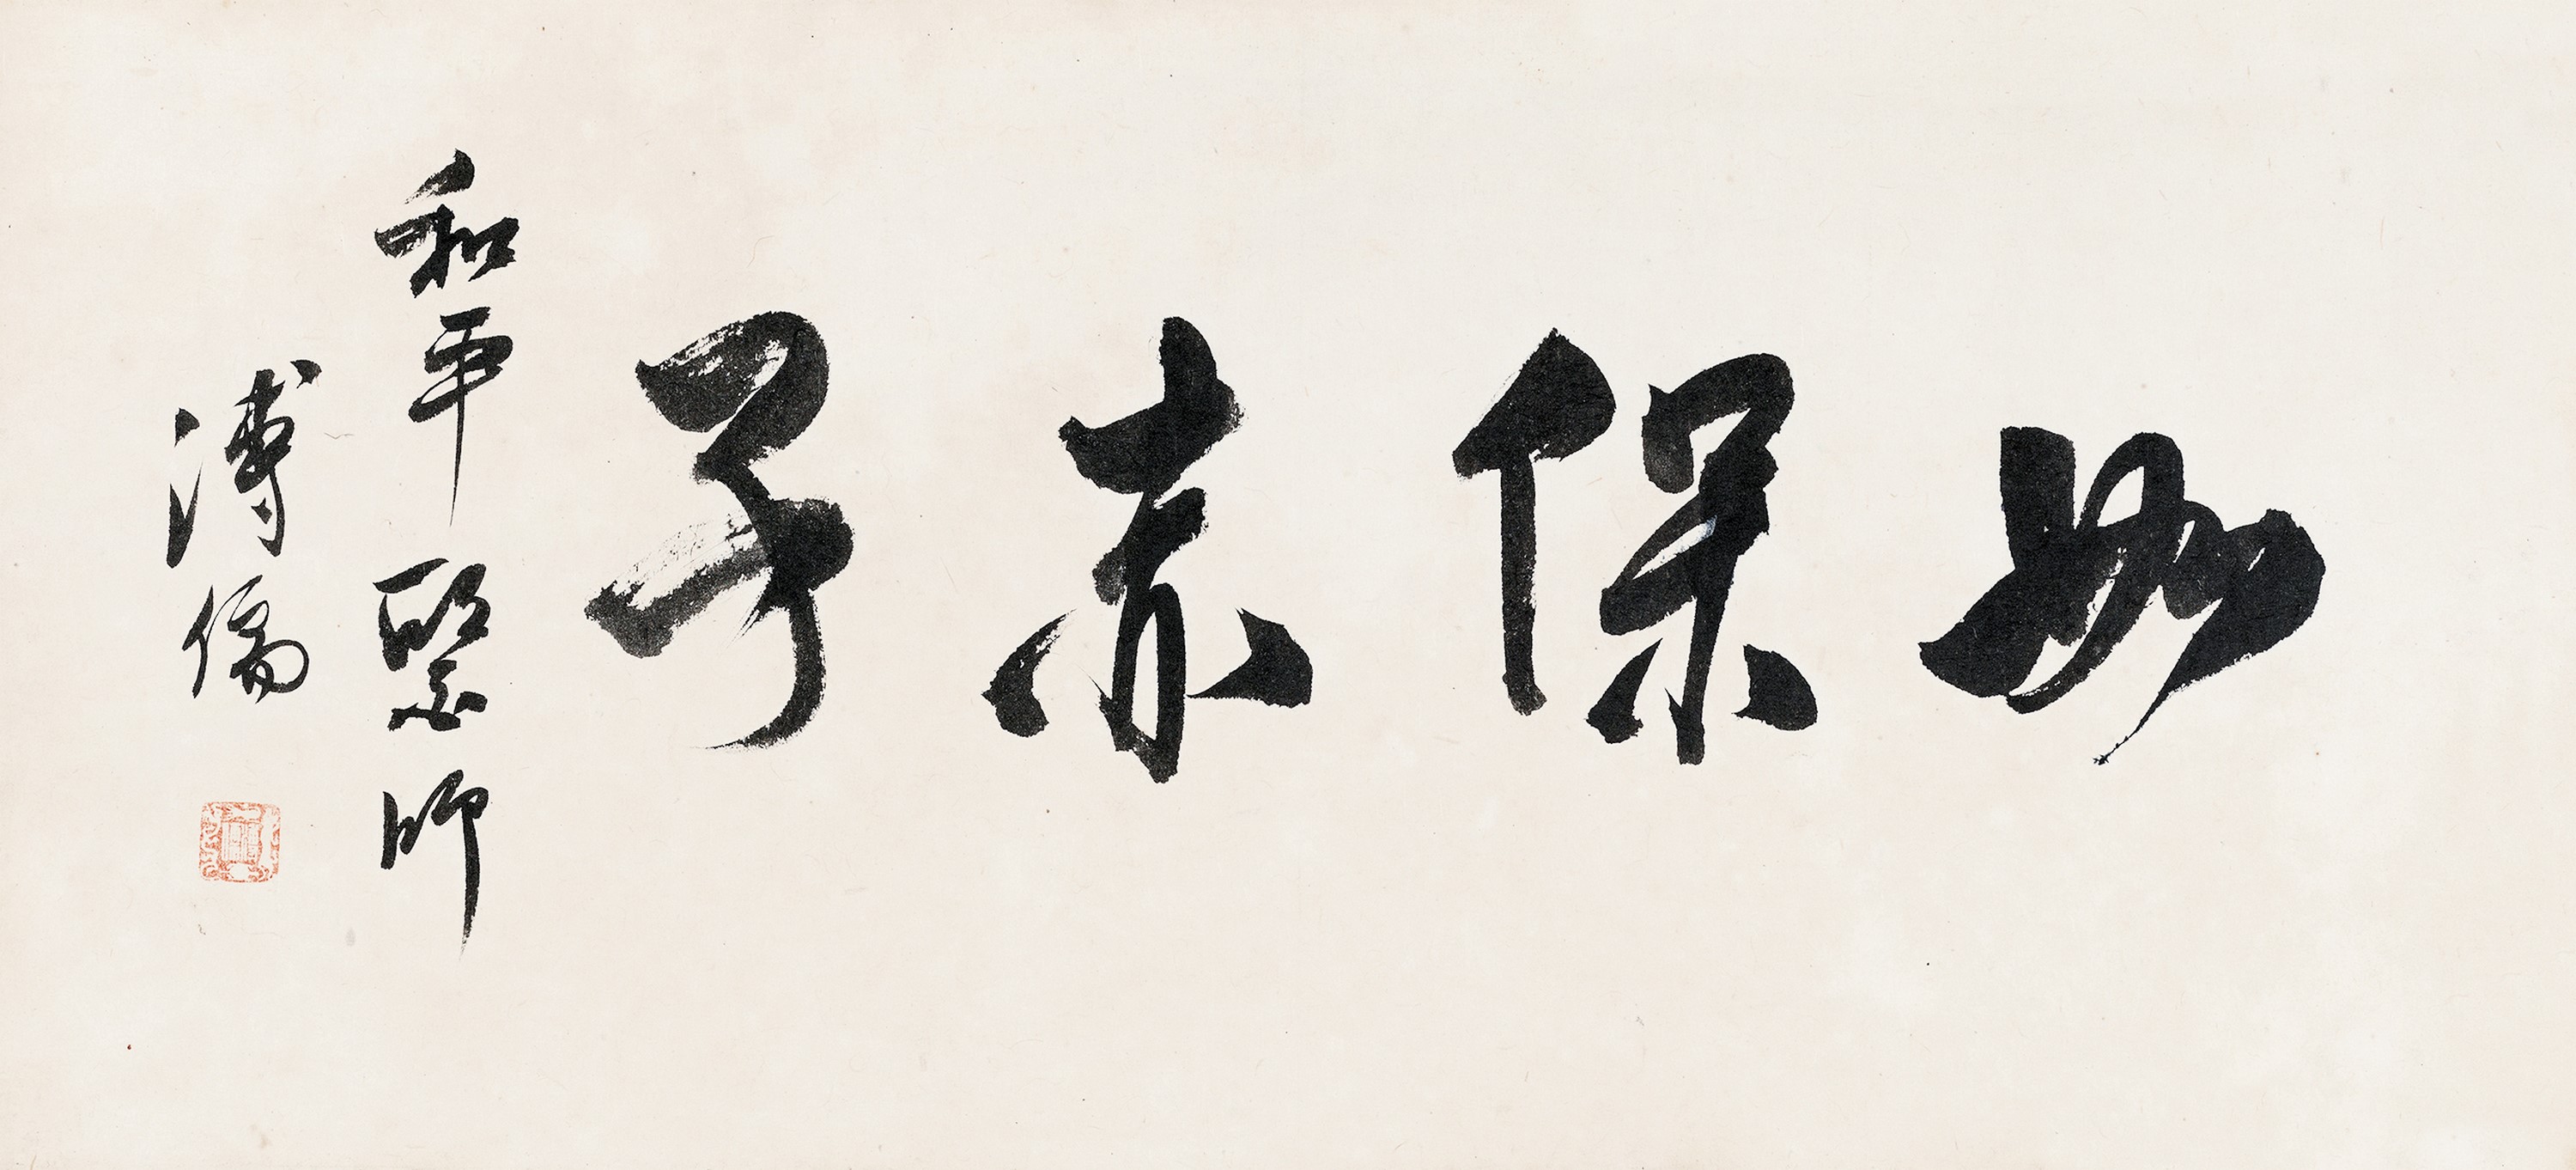 如保赤子
和平醫師
溥儒